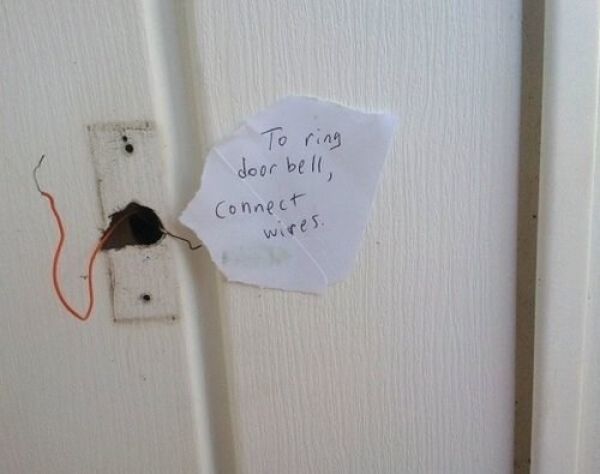 To ring
door bell,
connect
wires.